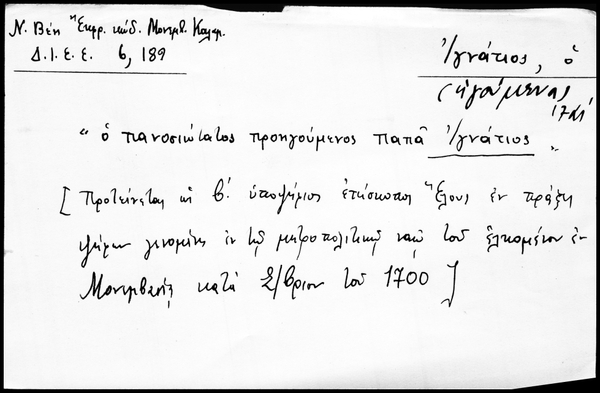 Ν. Βέη Ἔκφρ. κώδ. Μονεμβ. Καλαμ.
Δ.Ι.Ε.Ε. 6, 189
Ἰγνάτιος, ὁ
(ἡγούμενος
"ὁ πανοσιώτατος προηγούμενος παπᾶ Ἰγνάτιος"
[Προτείνεται ὡς β΄. ὑποψήφιος ἐπίσκοπος Ἕλους ἐν πράξει
ψήφων γενομένῃ ἐν τῷ μητροπολιτικῷ ναῷ τοῦ ἑλκομένου ἐν
Μονεμβασίᾳ κατὰ Σ/βριον τοῦ 1700]